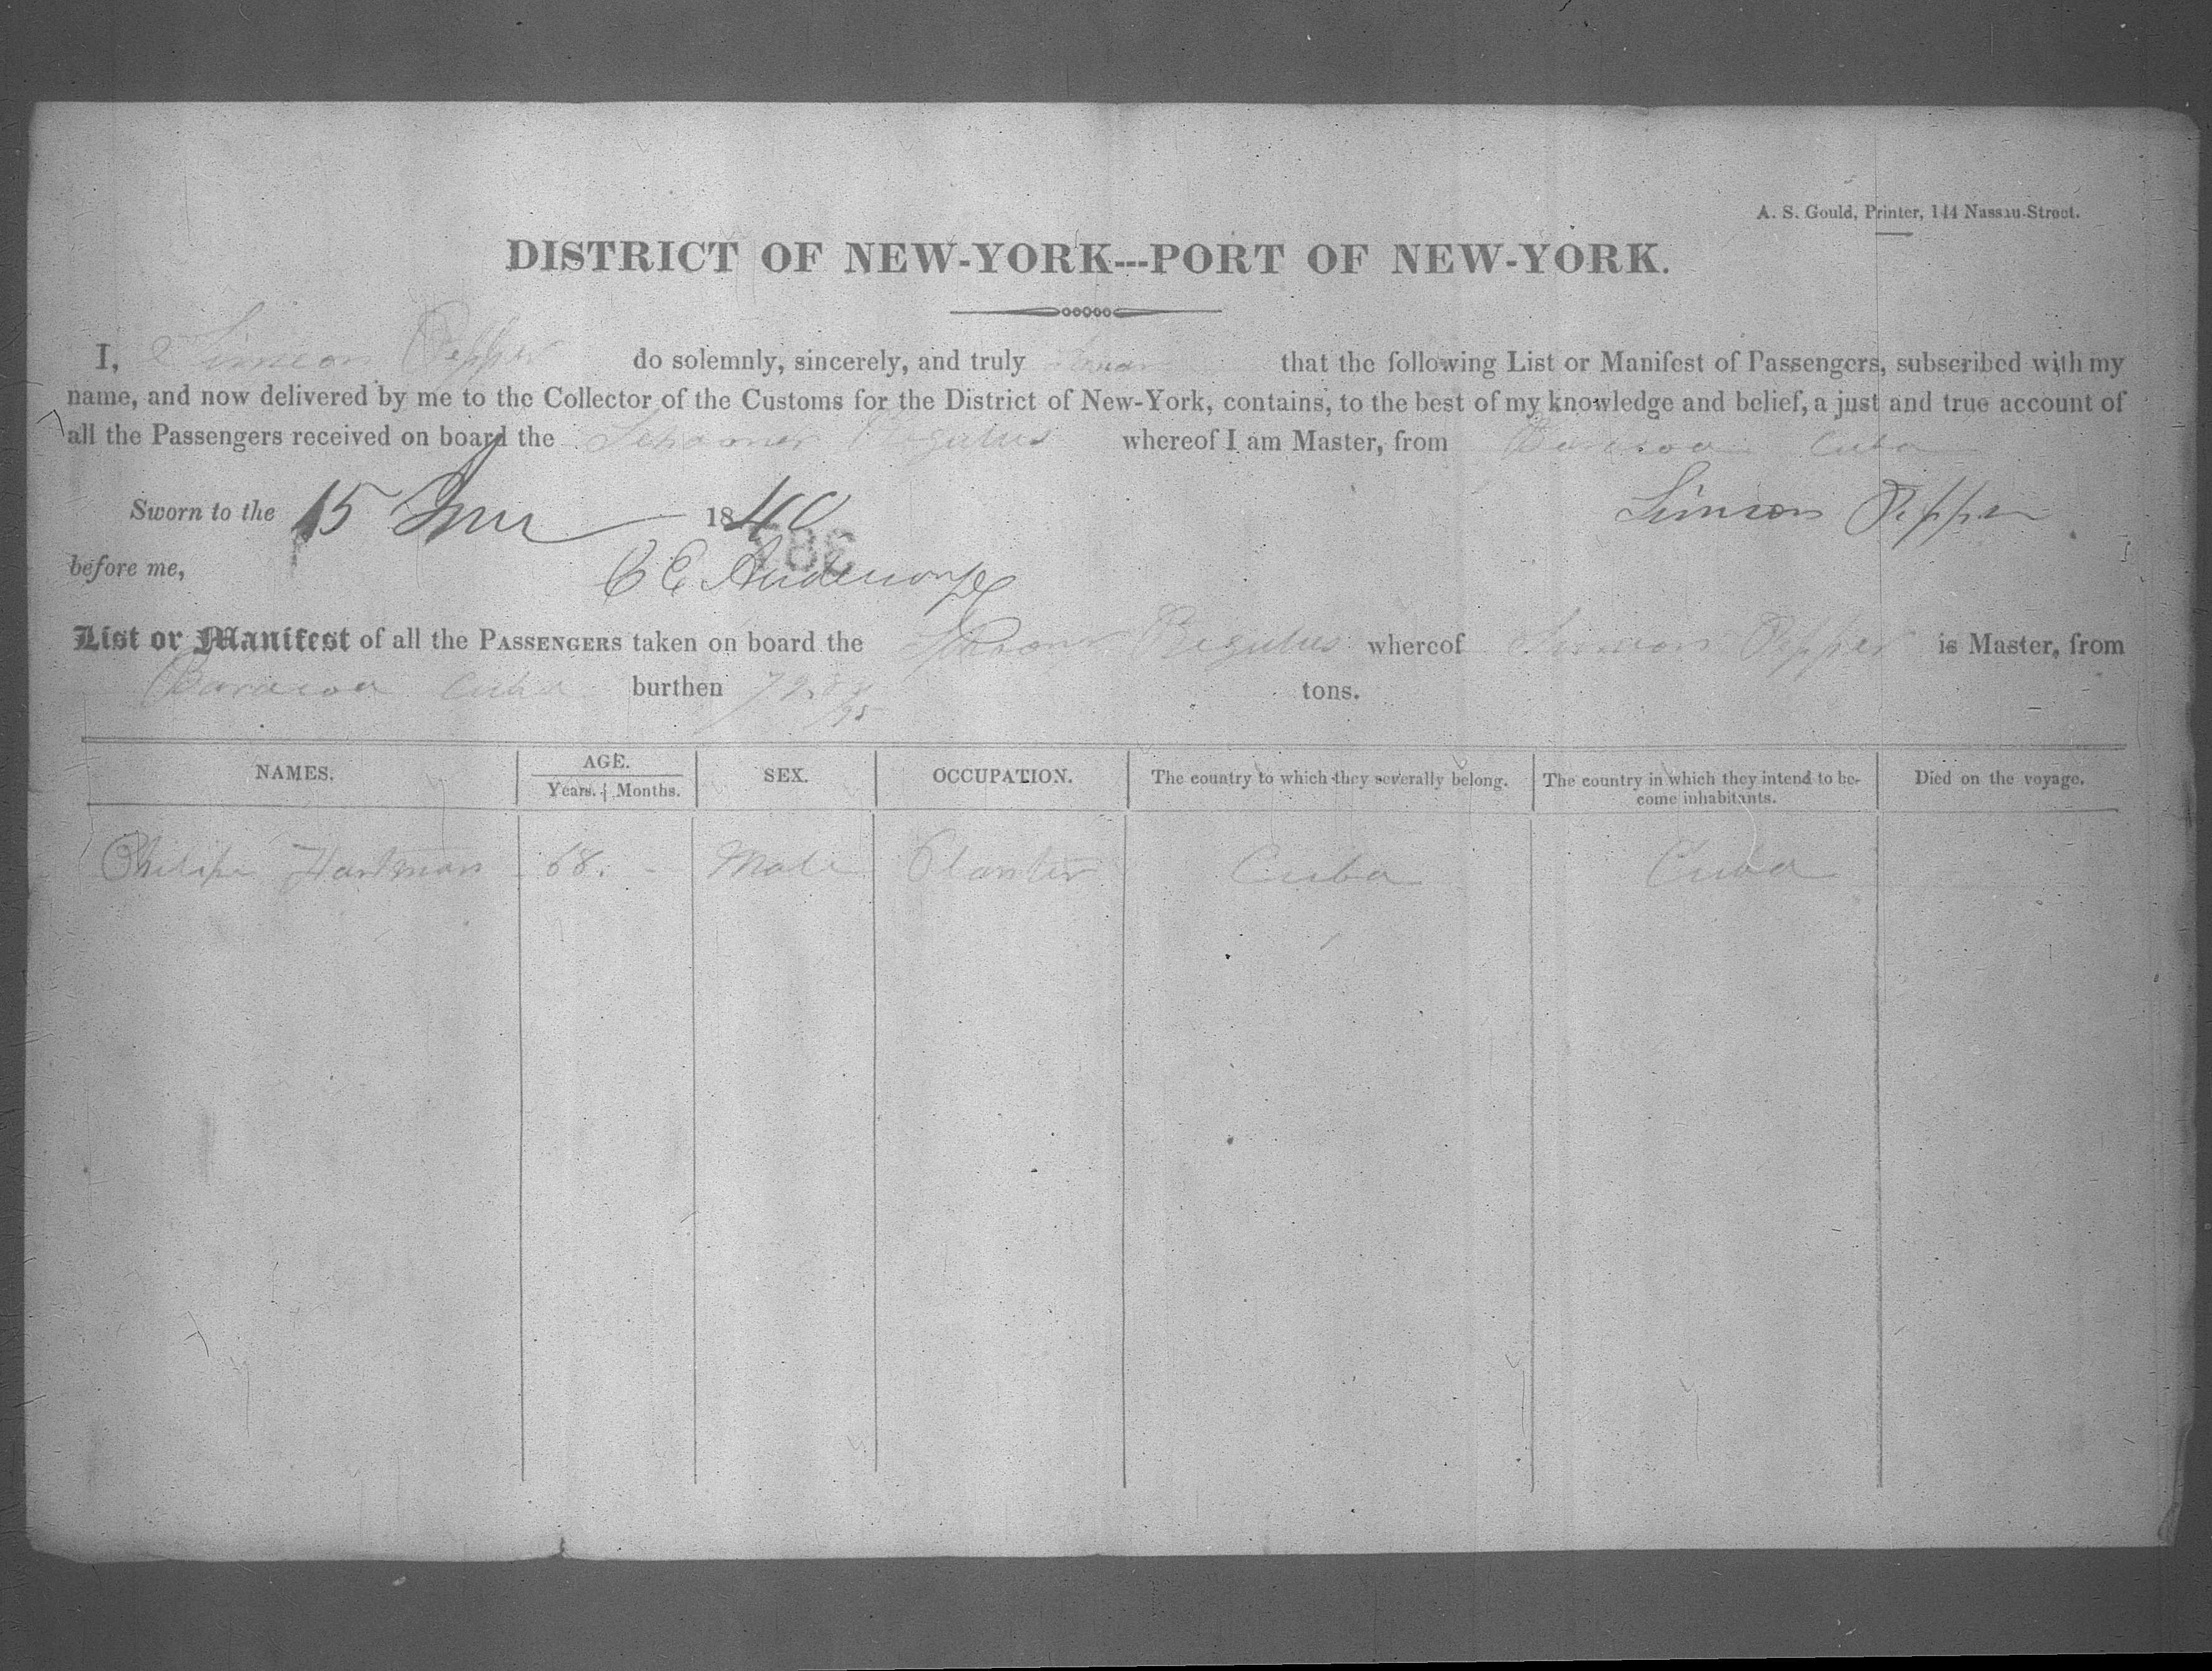 A. S. Gould, Printer, 144 Nassau-Street.
DISTRICT OF NEW-YORK---PORT OF NEW-YORK.
I, Simeon Pepper do solemnly, sincerely, and truly swear that the following List or Manifest of Passengers, subscribed with my
name, and now delivered by me to the Collector of the Customs for the District of New-York, contains, to the best of my knowledge and belief, a just and true account of
all the Passengers received on board the Schooner Regulus whereof I am Master, from Baracoa Cuba
Sworn to the 15 June 1840 Simeon Pepper
before me,
List or Manifest of all the PASSENGERS taken on board the Schooner Regulus whereof Simeon Pepper is Master, from
Baracoa Cuba burthen 72 tons.
NAMES. AGE. SEX. OCCUPATION. The country to which they severally belong. The country in which they intend to be- Died on the voyage.
Years. Months. come inhabitants.
Philip Hartman 68. - Male Planter Cuba Cuba